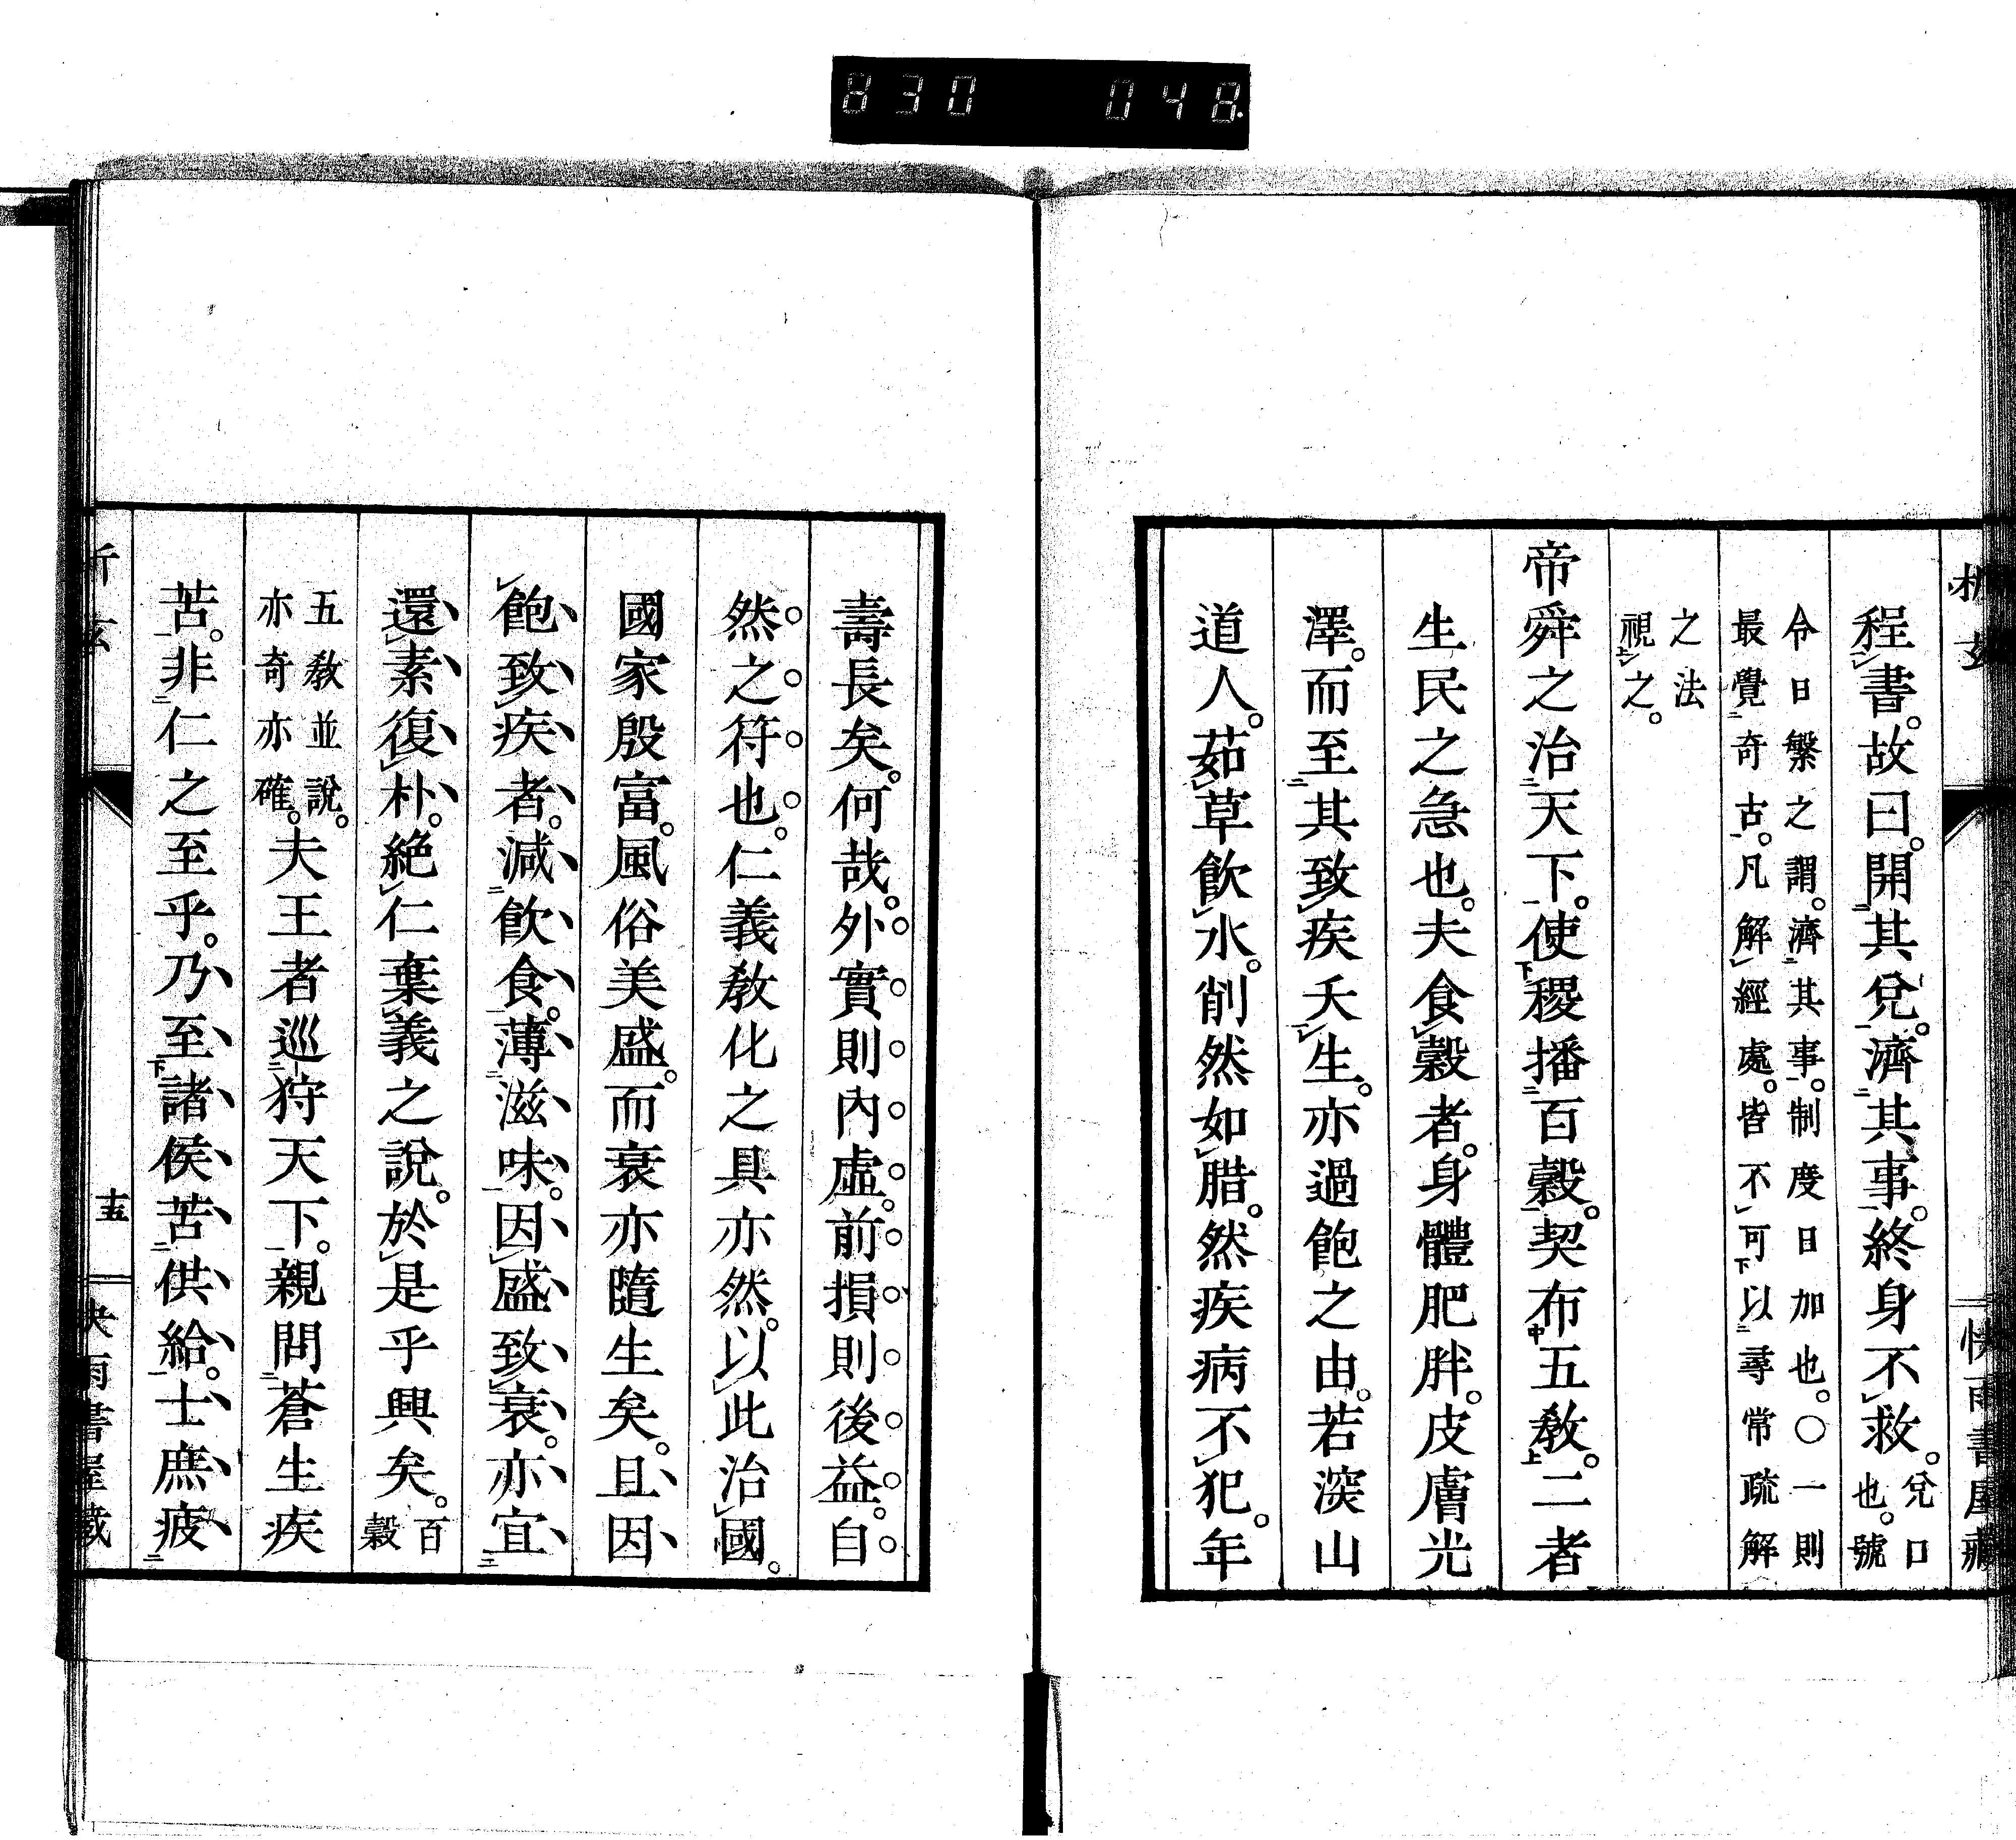 830 048
析玄 快雨書屋藏
程書。故曰。開其兌。濟其事。終身不救。兌口也。號
令日繁之謂。濟其事。制度日加也。〇一則
最覺奇古。凡解經處。皆不可以尋常疏解
之法
視之。
帝舜之治天下。使稷播百穀。契布五教。二者
生民之急也。夫食穀者。身體肥胖。皮膚光
澤。而至其致疾夭生。亦過飽之由。若深山
道人。茹草飲水。削然如腊。然疾病不犯。年
壽長矣。何哉。外實則內虛。前損則後益。自
然之符也。仁義教化之具亦然。以此治國。
國家殷富。風俗美盛。而衰亦隨生矣。且因
飽致疾者。減飲食。薄滋味。因盛致衰。亦宜
還素復朴。絕仁棄義之說。於是乎興矣。百穀
五教並說。
亦奇亦確。夫王者巡狩天下。親問蒼生疾
苦。非仁之至乎。乃至諸侯苦供給。士庶疲
析玄 十五 快雨書屋藏